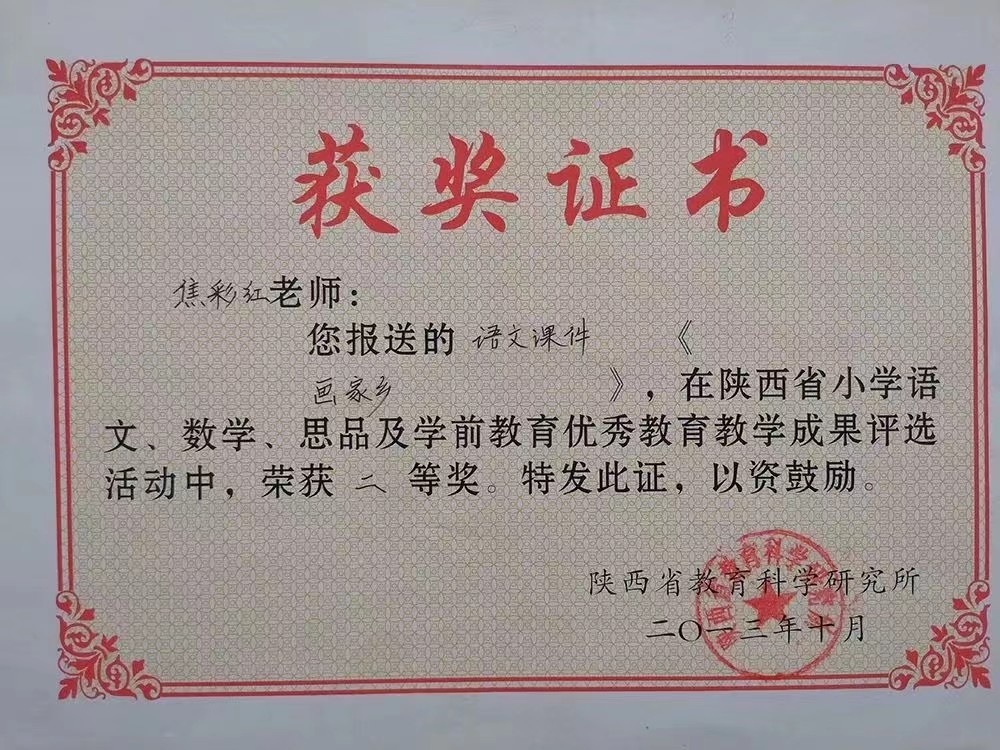 获奖证书
焦彩红老师：
您报送的 语文课件 《
画家乡 》，在陕西省小学语
文、数学、思品及学前教育优秀教育教学成果评选
活动中，荣获 二 等奖。特发此证，以资鼓励。
陕西省教育科学研究所
二〇一三年十月
陕西省教育科学研究所